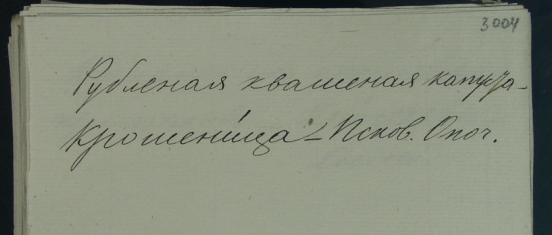 3004
Рубленая квашеная капуста –
Крошени́ца – Псков. Опоч.